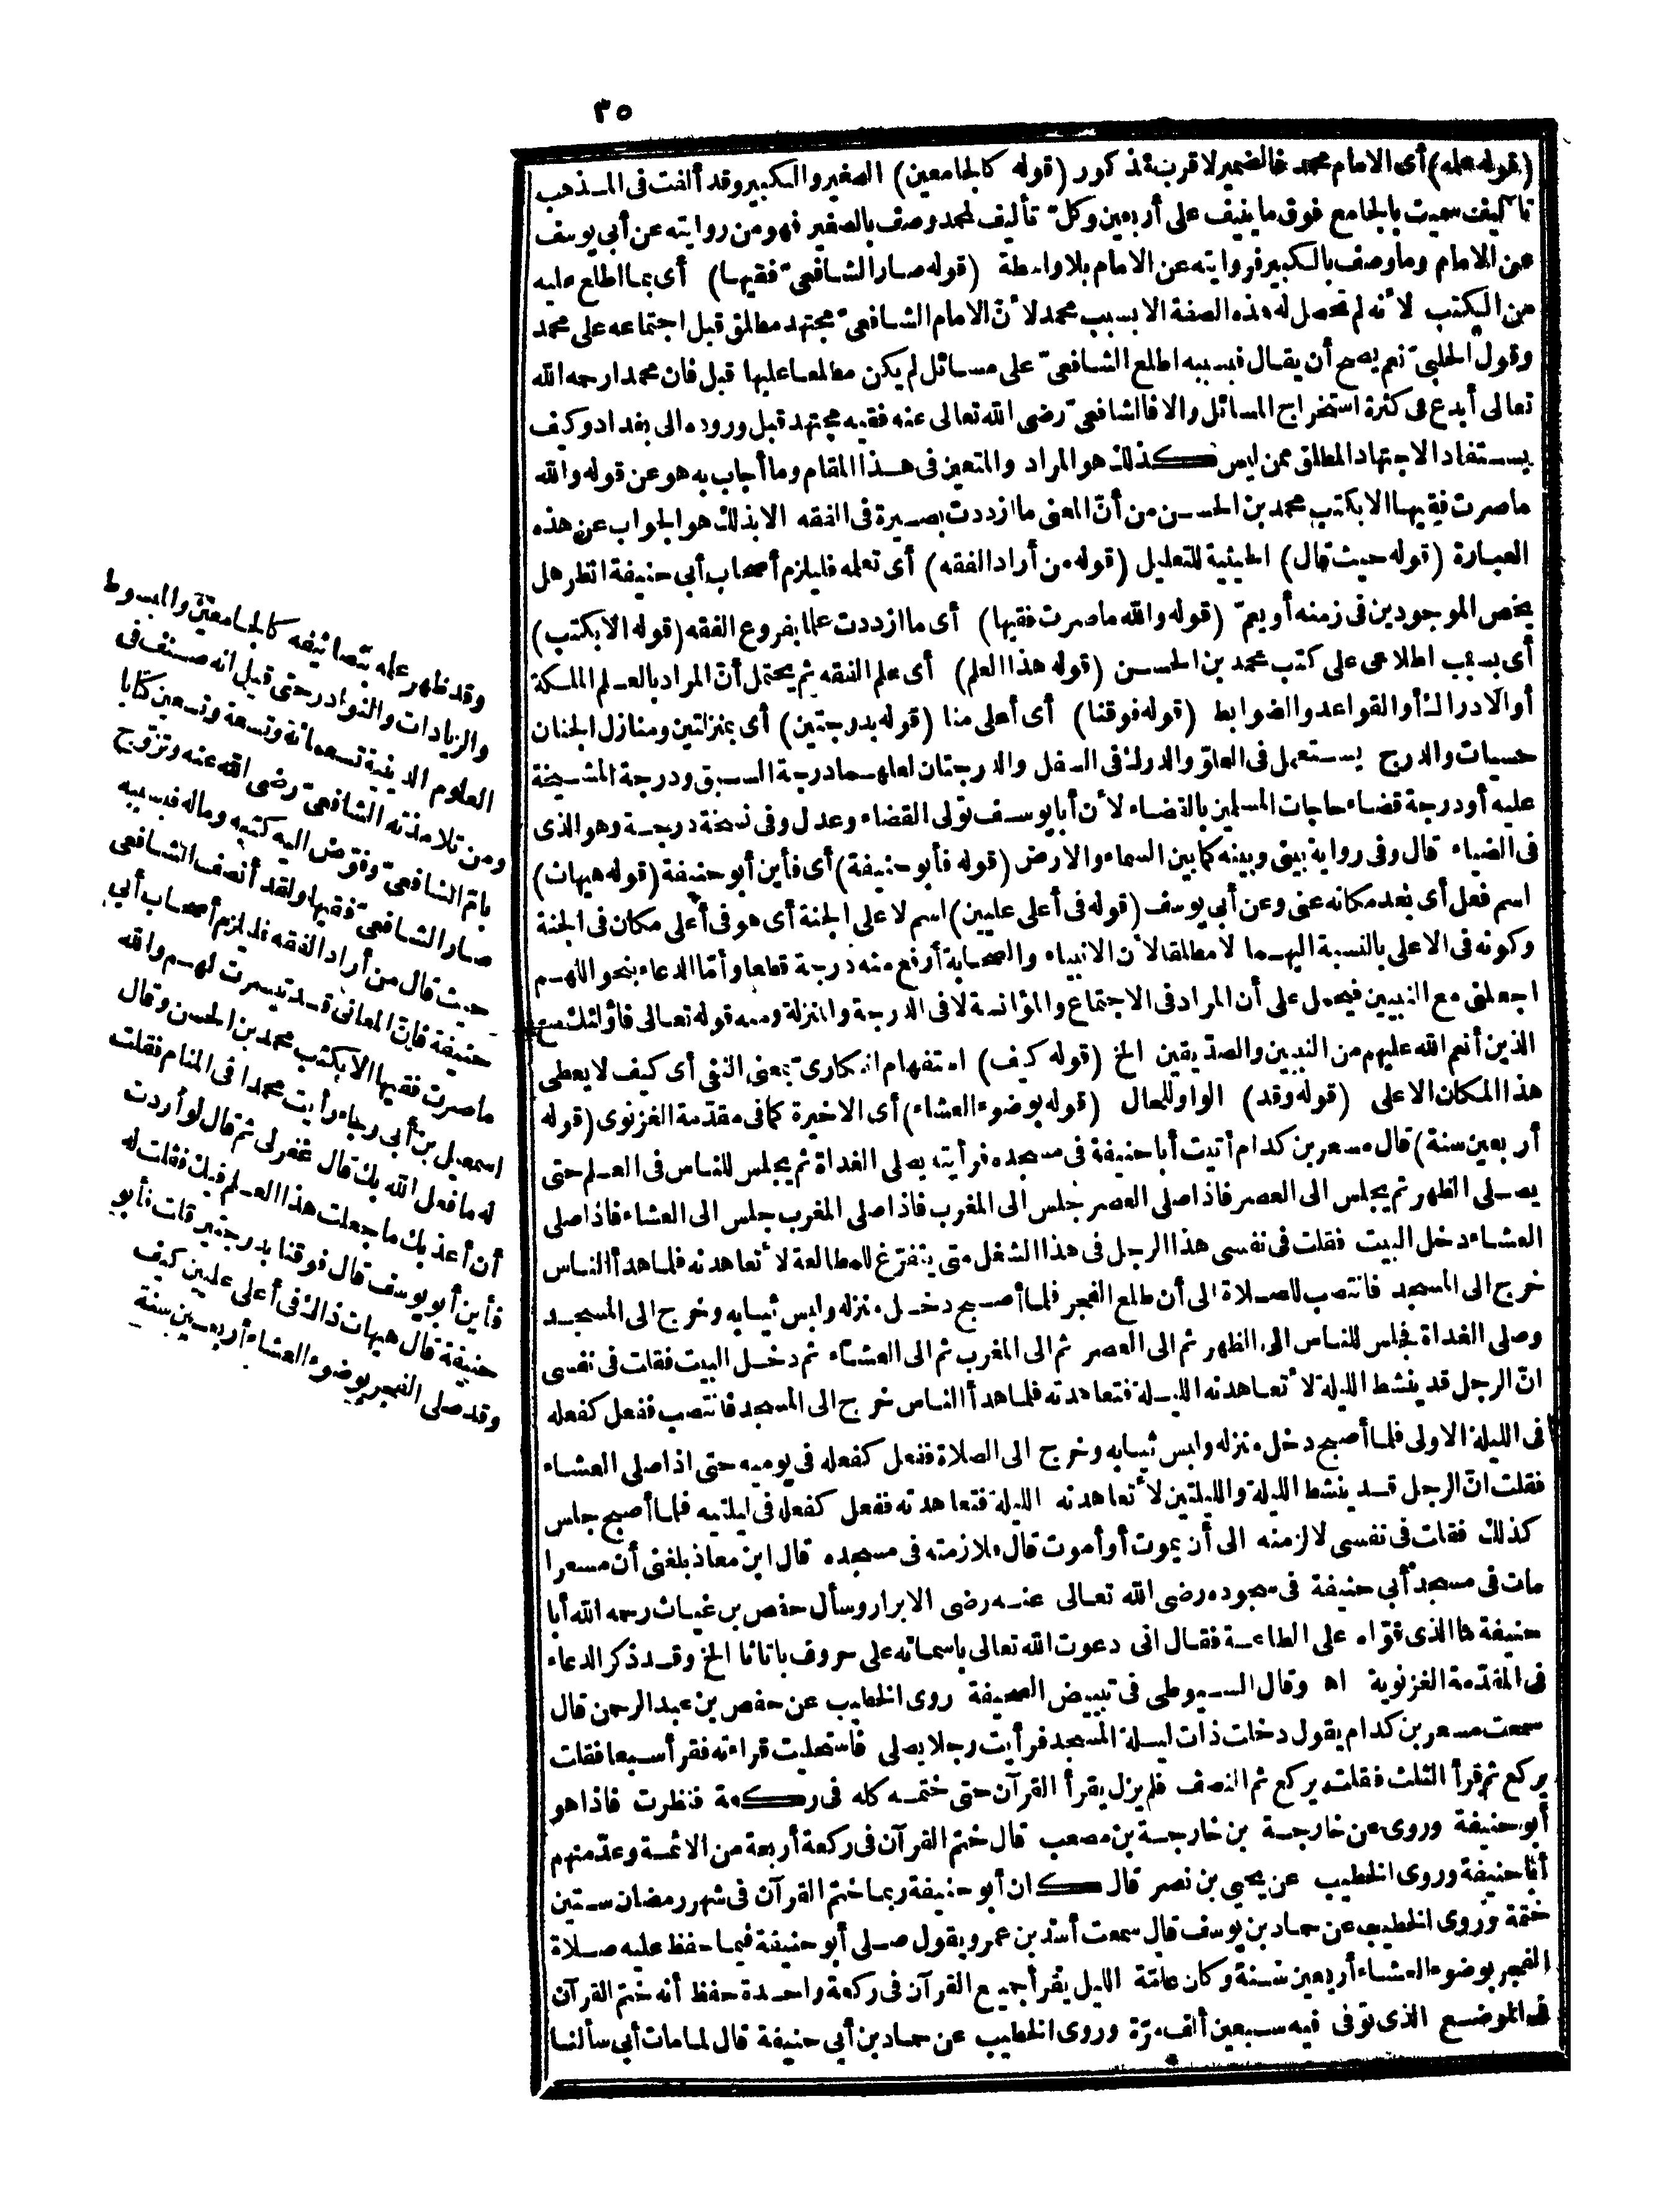 ٣٥
(قوله علمه) أى الامام محمد فالضمير لاقرب مذكور (قوله كالجامعين) الصغير والكبير وقد ألفت فى المذهب
تآليف سميت بالجامع فوق ما ينيف على أربعين وكلّ تأليف لمحمد وصف بالصغير فهو من روايته عن أبى يوسف
عن الامام وما وصف بالكبير فروايته عن الامام بلا واسطة (قوله صار الشافعىّ فقيها) أى بما اطلع عليه
من الكتب لا أنه لم تحصل له هذه الصفة الا بسبب محمد لأنّ الامام الشافعىّ مجتهد مطلق قبل اجتماعه على محمد
وقول الحلبىّ نعم يصح أن يقال فبسببه اطلع الشافعىّ على مسائل لم يكن مطلعا عليها قبل فان محمدا رحمه الله
تعالى أبدع فى كثرة استخراج المسائل والا فالشافعىّ رضى الله تعالى عنه فقيه مجتهد قبل وروده الى بغداد وكيف
يستفاد الاجتهاد المطلق ممن ليس كذلك هو المراد والمتعين فى هذا المقام وما أجاب به هو عن قوله والله
ما صرت فقيها الا بكتب محمد بن الحسن من أنّ المعنى ما ازددت بصيرة فى الفقه الا بذلك هو الجواب عن هذه
العبارة (قوله حيث قال) الحيثية للتعليل (قوله من أراد الفقه) أى تعلمه فليلزم أصحاب أبى حنيفة انظر هل
يخص الموجودين فى زمنه أو يعمّ (قوله والله ما صرت فقيها) أى ما ازددت علما بفروع الفقه (قوله الا بكتب)
أى بسبب اطلاعى على كتب محمد بن الحسن (قوله هذا العلم) أى علم الفقه ثم يحتمل أنّ المراد بالعلم الملكة
أو الادراك أو القواعد والضوابط (قوله فوقنا) أى أعلى منا (قوله بدرجتين) أى بمنزلتين ومنازل الجنان
حسيات والدرج يستعمل فى العلوّ والدرك فى السفل والدرجتان لعلهما درجة السبق ودرجة المشيخة
عليه أو درجة قضاء حاجات المسلمين بالقضاء لأن أبا يوسف تولى القضاء وعدل وفى نسخة درجة وهو الذى
فى الضياء قال وفى رواية بينى وبينه كما بين السماء والارض (قوله فأبو حنيفة) أى فأين أبو حنيفة (قوله هيهات)
اسم فعل أى بعد مكانه عنى وعن أبى يوسف (قوله فى أعلى عليين) اسم لاعلى الجنة أى هو فى أعلى مكان فى الجنة
وكونه فى الاعلى بالنسبة اليهما لا مطلقا لأن الانبياء والصحابة أرفع منه درجة قطعا وأمّا الدعاء بنحو اللهم
اجعلنى مع النبيين فيحمل على أن المراد فى الاجتماع والمؤانسة لا فى الدرجة والمنزلة ومنه قوله تعالى فأولئك مع
الذين أنعم الله عليهم من النبيين والصدّيقين الخ (قوله كيف) استفهام انكارىّ بمعنى النفى أى كيف لا يعطى
هذا المكان الاعلى (قوله وقد) الواو للحال (قوله بوضوء العشاء) أى الاخيرة كما فى مقدّمة الغزنوى (قوله
أربعين سنة) قال مسعر بن كدام أتيت أبا حنيفة فى مسجده فرأيته يصلى الغداة ثم يجلس للناس فى العلم حتى
يصلى الظهر ثم يجلس الى العصر فاذا صلى العصر جلس الى المغرب فاذا صلى المغرب جلس الى العشاء فاذا صلى
العشاء دخل البيت فقلت فى نفسى هذا الرجل فى هذا الشغل متى يتفرّغ للمطالعة لأتعاهدنه فلما هدأ الناس
خرج الى المسجد فانتصب للصلاة الى أن طلع الفجر فلما أصبح دخل منزله ولبس ثيابه وخرج الى المسجد
وصلى الغداة فجلس للناس الى الظهر ثم الى العصر ثم الى المغرب ثم الى العشاء ثم دخل البيت فقلت فى نفسى
انّ الرجل قد ينشط الليلة لأتعاهدنه الليلة فتعاهدته فلما هدأ الناس خرج الى المسجد فانتصب ففعل كفعله
فى الليلة الاولى فلما أصبح دخل منزله ولبس ثيابه وخرج الى الصلاة ففعل كفعله فى يوميه حتى اذا صلى العشاء
فقلت انّ الرجل قد ينشط الليلة والليلتين لأتعاهدنه الليلة فتعاهدته ففعل كفعله فى ليلتيه فلما أصبح جلس
كذلك فقلت فى نفسى لالزمنه الى أن يموت أو أموت قال ملازمته فى مسجده قال ابن معاذ بلغنى أن مسعرا
مات فى مسجد أبى حنيفة فى سجوده رضى الله تعالى عنه رضى الابرار وسأل حفص بن غياث رحمه الله أبا
حنيفة ما الذى قوّاه على الطاعة فقال انى دعوت الله تعالى باسمائه على حروف با تا ثا الخ وقد ذكر الدعاء
فى المقدّمة الغزنوية اه وقال السيوطى فى تبييض الصحيفة روى الخطيب عن حفص بن عبد الرحمن قال
سمعت مسعر بن كدام يقول دخلت ذات ليلة المسجد فرأيت رجلا يصلى فاستحليت قراءته فقرأ سبعا فقلت
يركع ثم قرأ الثلث فقلت يركع ثم النصف فلم يزل يقرأ القرآن حتى ختمه كله فى ركعة فنظرت فاذا هو
أبو حنيفة وروى عن خارجة بن خارجة بن مصعب قال ختم القرآن فى ركعة أربعة من الائمة وعدّ منهم
أبا حنيفة وروى الخطيب عن يحيى بن نصر قال كان أبو حنيفة ربما ختم القرآن فى شهر رمضان ستين
ختمة وروى الخطيب عن حماد بن يوسف قال سمعت أسد بن عمرو يقول صلى أبو حنيفة فيما حفظ عليه صلاة
الفجر بوضوء العشاء أربعين سنة وكان عامّة الليل يقرأ جميع القرآن فى ركعة واحدة حفظ أنه ختم القرآن
فى الموضع الذى توفى فيه سبعين ألف مرّة وروى الخطيب عن حماد بن أبى حنيفة قال لما مات أبى سألنا
وقد ظهر علمه بتصانيفه كالجامعين والمبسوط
والزيادات والنوادر حتى قيل انه صنف فى
العلوم الدينية تسعمائة وتسعة وتسعين كتابا
ومن تلامذته الشافعىّ رضى الله عنه وتزوّج
بامّ الشافعىّ وفوّض اليه كتبه وماله فبسببه
صار الشافعىّ فقيها ولقد أنصف الشافعى
حيث قال من أراد الفقه فليلزم أصحاب أبى
حنيفة فانّ المعانى قد تيسرت لهم والله
ما صرت فقيها الا بكتب محمد بن الحسن وقال
اسمعيل بن أبى رجاء رأيت محمدا فى المنام فقلت
له ما فعل الله بك قال غفر لى ثم قال لو أردت
أن أعذبك ما جعلت هذا العلم فيك فقلت له
فأين أبو يوسف قال فوقنا بدرجتين قلت فأبو
حنيفة قال هيهات ذاك فى أعلى عليين كيف
وقد صلى الفجر بوضوء العشاء أربعين سنة